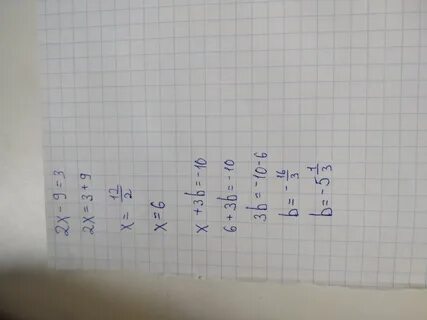 2x - 9 = 3
2x = 3 + 9
x = 12/2
x = 6
x + 3b = -10
6 + 3b = -10
3b = -10 - 6
b = - 16/3
b = -5 1/3